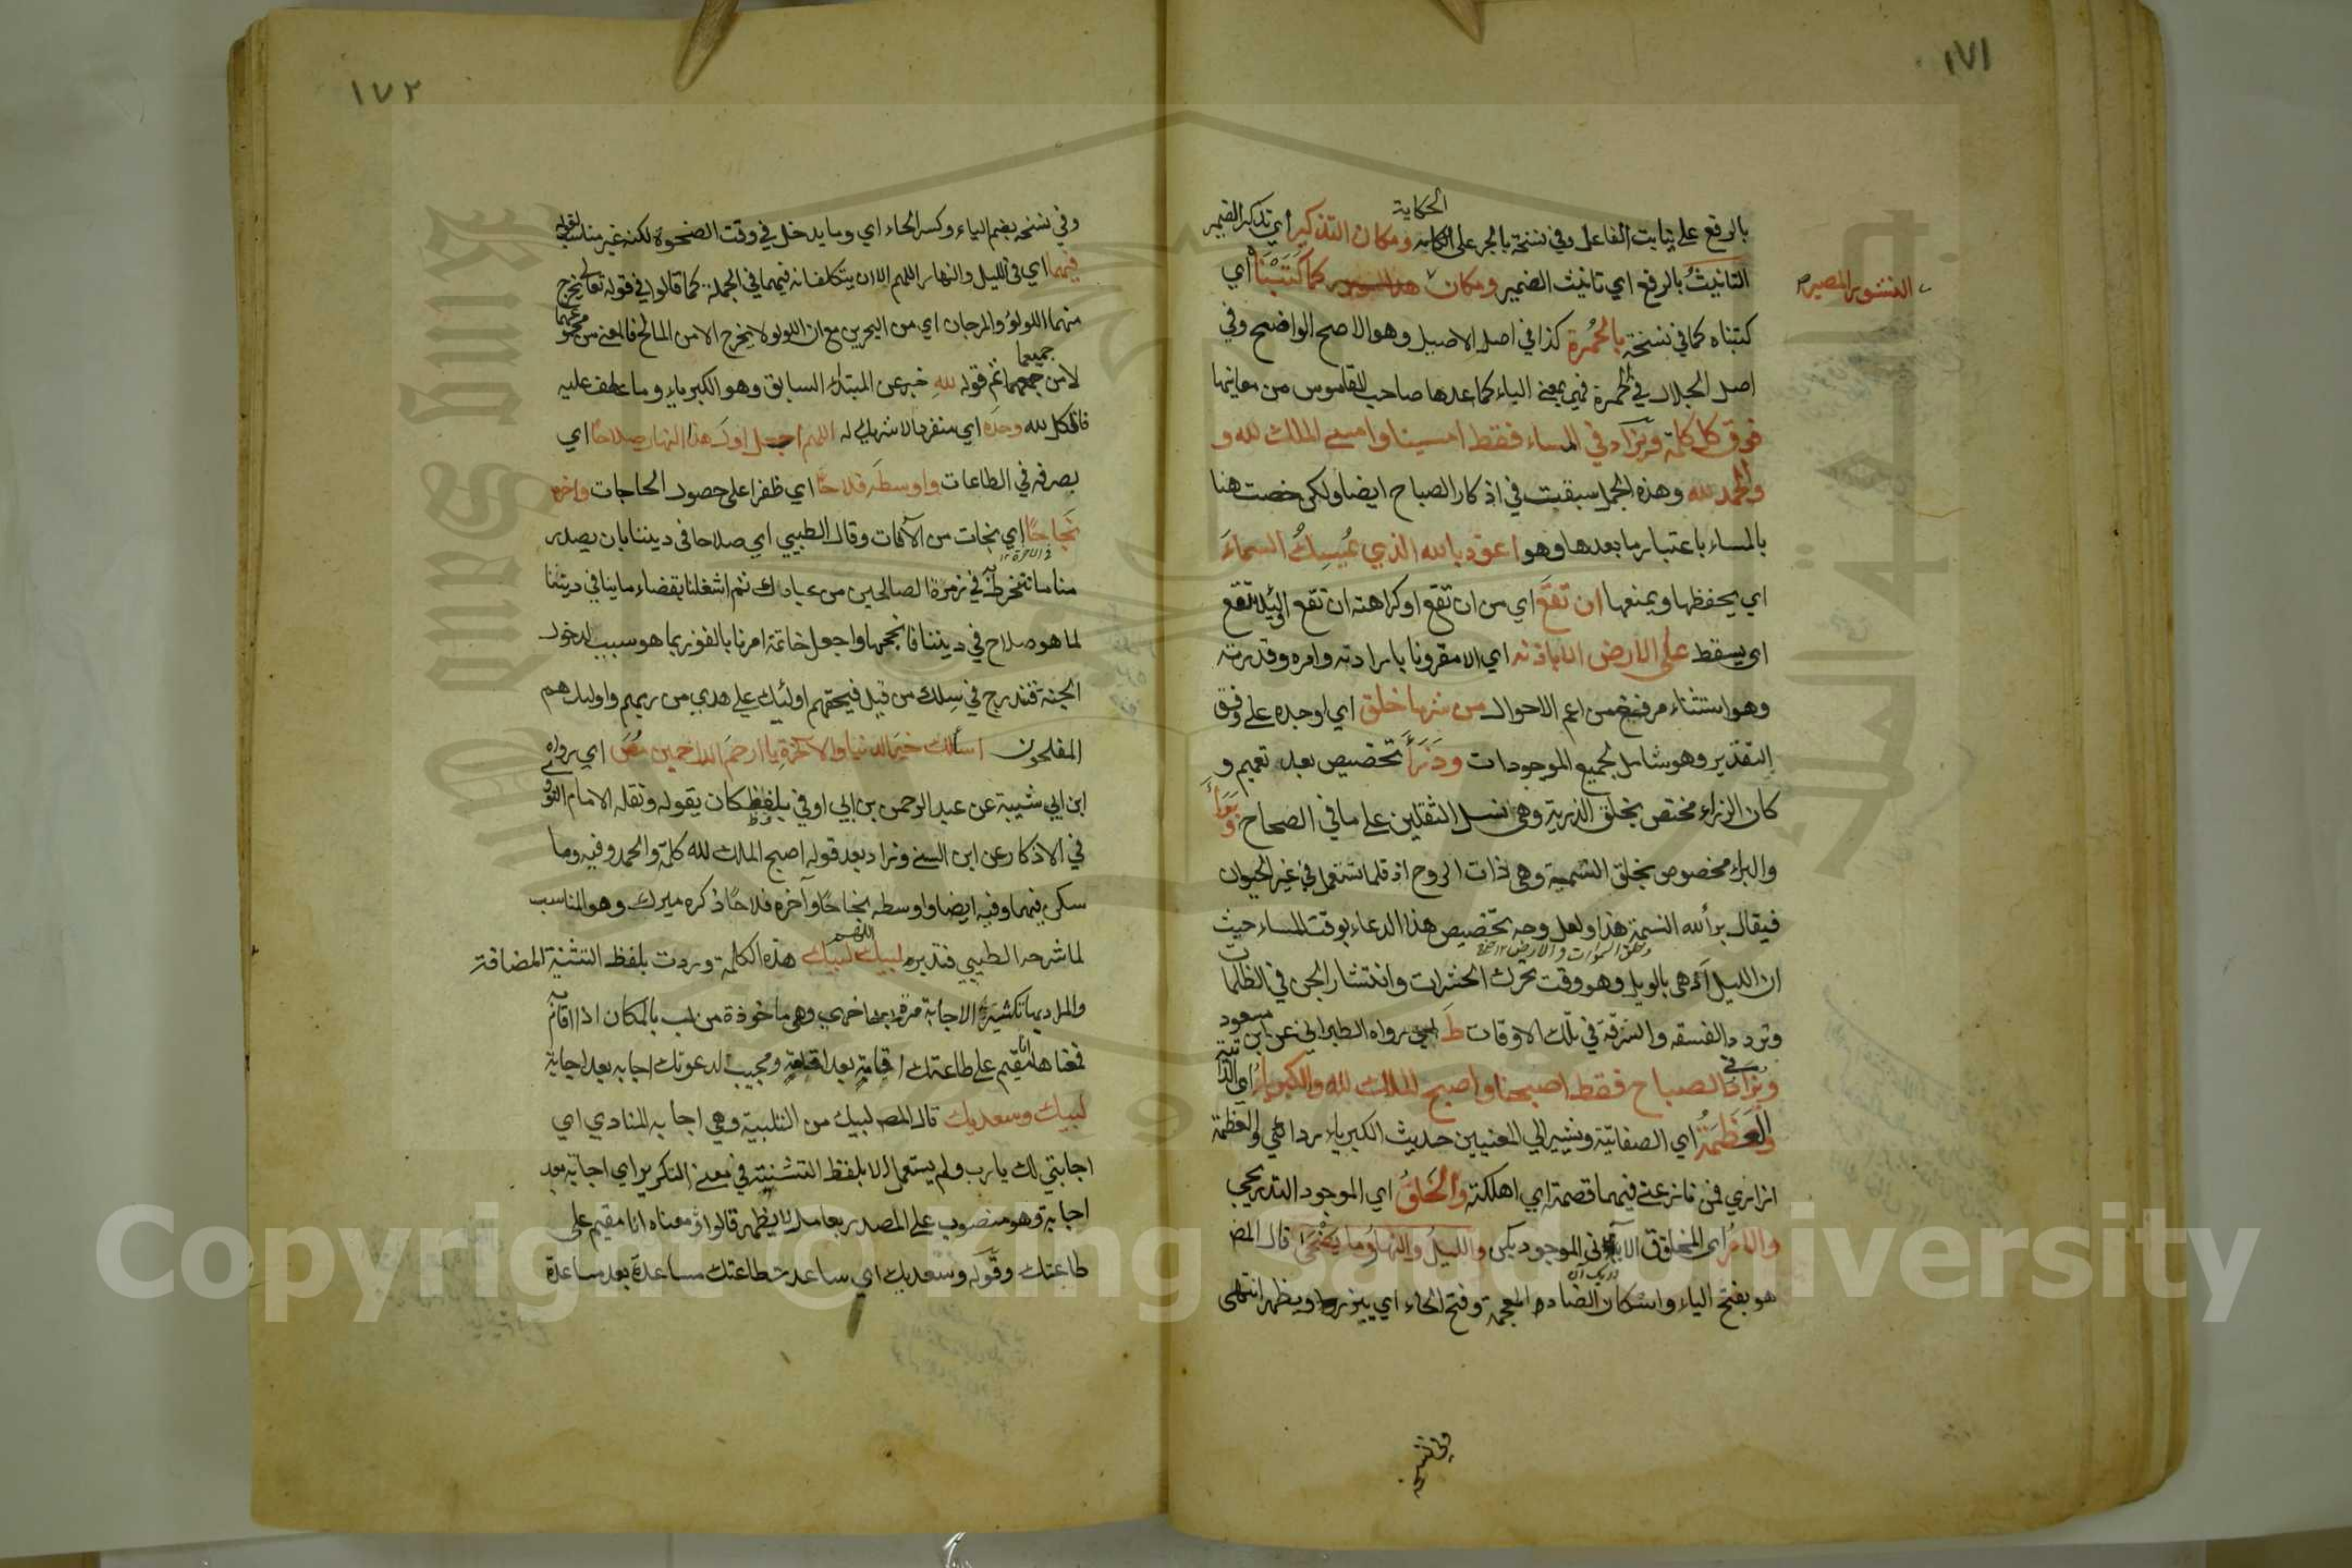 ١٧١
بالرفع على نيابت الفاعل وفي نسخة بالجر على الحكاية ومكان التذكير اي تذكير الضمير
التانيثُ بالرفع اي تانيث الضمير ومكان كما كَتَبْنَاه اي
النشور المصير
كتبناه كما في نسخة بالحُمْرة كذا في اصل الاصيل وهو الاصح الواضح وفي
اصل الجلال في الحمرة فهي بمعنى الباء كما عدها صاحب القاموس من معانيها
فوق كل كلمة ويزاد في المساء فقط امسينا وامسى الملك لله و
والحمد لله وهذه الجمل سبقت في اذكار الصباح ايضا ولكن خصت هنا
بالمساء باعتبار ما بعدها وهو اعوذ بالله الذي يُمسِكُ السماءَ
اي يحفظها ويمنعها ان تقعَ اي من ان تقع او كراهته ان تقع اي لئلا تقع
اي يسقط على الارض الا باذنه اي الا مقرونا بارادته وامره وقدرته
وهو استثناء مفرغ من اعم الاحوال من شر ما خلق اي اوجده على وفق
التقدير وهو شامل لجميع الموجودات وذَرَأَ تخصيص بعد تعميم و
كان الذراء مختص بخلق الذرية وهي نسل الثقلين على ما في الصحاح وبَرَأَ
والبراء مخصوص بخلق النسمة وهي ذات الروح اذ قلما تستعمل في غير الحيوان
فيقال برأ الله النسمة هذا ولعل وجه تخصيص هذا الدعاء بوقت المساء حيث
وخلق السموات والارض
ان الليل ادهى بالويل وهو وقت تحرك الحشرات وانتشار الجن في الظلمات
وتردد الفسقة والسرقة في تلك الاوقات طَ اي رواه الطبراني عن ابن مسعود
ويُزادُ في الصباح فقط اصبحنا واصبح الملك لله والكبرياءُ اي الذاتية
والعَظَمَةُ اي الصفاتية ويشير الي المعنيين حديث الكبرياء ردائي والعظمة
ازاري فمن نازعني فيهما قصمته اي اهلكته والخَلقُ اي الموجود التدريجي
والامرُ اي المخلوق الآني الموجود بكن والليلُ والنهارُ وما يَضْحَى قال المص
هو بفتح الياء واسكان الضاد المعجمة وفتح الحاء اي يبرز ويظهر انتهى
وفي نسخة
١٧٢
وفي نسخة بضم الياء وكسر الحاء اي وما يدخل في وقت الضحوة لكنه غير مناسب لقوله
فيهما اي في الليل والنهار اللهم الا ان يتكلف انه فيهما في الجملة كما قالوا في قوله تعالى يخرج
منهما اللولؤ والمرجان اي من البحرين مع ان اللولو لا يخرج الا من المالح فالمعنى من مجموعهما
لا من جميعهما ثم قوله للهِ خبر عن المبتداء السابق وهو الكبرياء وما عطف عليه
فالكل لله وحدَه اي منفردا لا شريك له اللهم اجعل اول هذا النهار صلاحًا اي
بصرفه في الطاعات واوسطَه فلاحًا اي ظفرا على حصول الحاجات واخره
نجاحًا اي نجات من الآفات وقال الطيبي اي صلاحا في ديننا بان يصدر
منا ما ننخرط به في زمرة الصالحين من عبادك ثم اشغلنا بقضاء ما ينافي دينتنا
لما هو صلاح في ديننا فانجحها واجعل خاتمة امرنا بالفوز بما هو سبب لدخول
الجنة فنندرج في سلك من قيل في حقهم اولئك على هدي من ربهم واوليك هم
المفلحون اسألك خيرَ الدنيا والآخرةِ يا ارحمَ الراحمين مُصَ اي رواه
ابن ابي شيبة عن عبد الرحمن بن ابي اوفي بلفظ كان يقوله ونقله الامام النووي
في الاذكار عن ابن السني وزاد بعد قوله اصبح الملك لله كلمة والحمد وفيه وما
سكن فيهما وفيه ايضا واوسطه نجاحًا وآخره فلاحًا ذكره ميرك وهو المناسب
لما شرحه الطيبي فتدبره لبيك اللهم لبيك هذه الكلمة وردت بلفظ التثنية المضافة
والمراد بها تكثير الاجابة مرة بعد اخري وهي ماخوذة من لب بالمكان اذا اقام به
فمعناها انا مقيم على طاعتك اقامة بعد اقامة ومجيب لدعوتك اجابة بعد اجابة
لبيك وسعديك قال المص لبيك من التلبية وهي اجابة المنادي اي
اجابتي لك يا رب ولم يستعمل الا بلفظ التثنية في معنى التكرير اي اجابة بعد
اجابة وهو منصوب على المصدر بعامل لا يظهر قالوا ومعناه انا مقيم على
طاعتك وقوله وسعديك اي ساعدت طاعتك مساعدة بعد مساعدة
Copyright © King Saud University